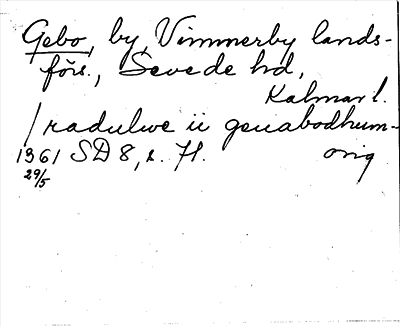 Gebo, by, Vimmerby lands-
förs., Sevede hd,
Kalmar l.
/ radulwe ii genabodhum-
1361 SD 8, s. 71. orig
29/5